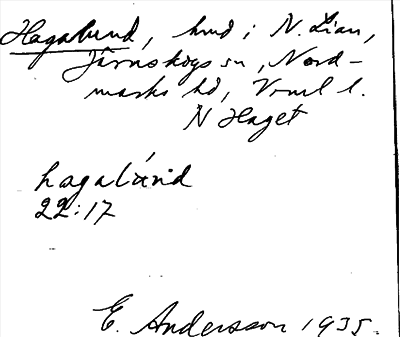 Hagalund, hmd i N. Lian,
Järnskogs sn, Nord-
marks hd, Vrml l.
N Haget
hagalúnd
22:17
E. Andersson 1935.